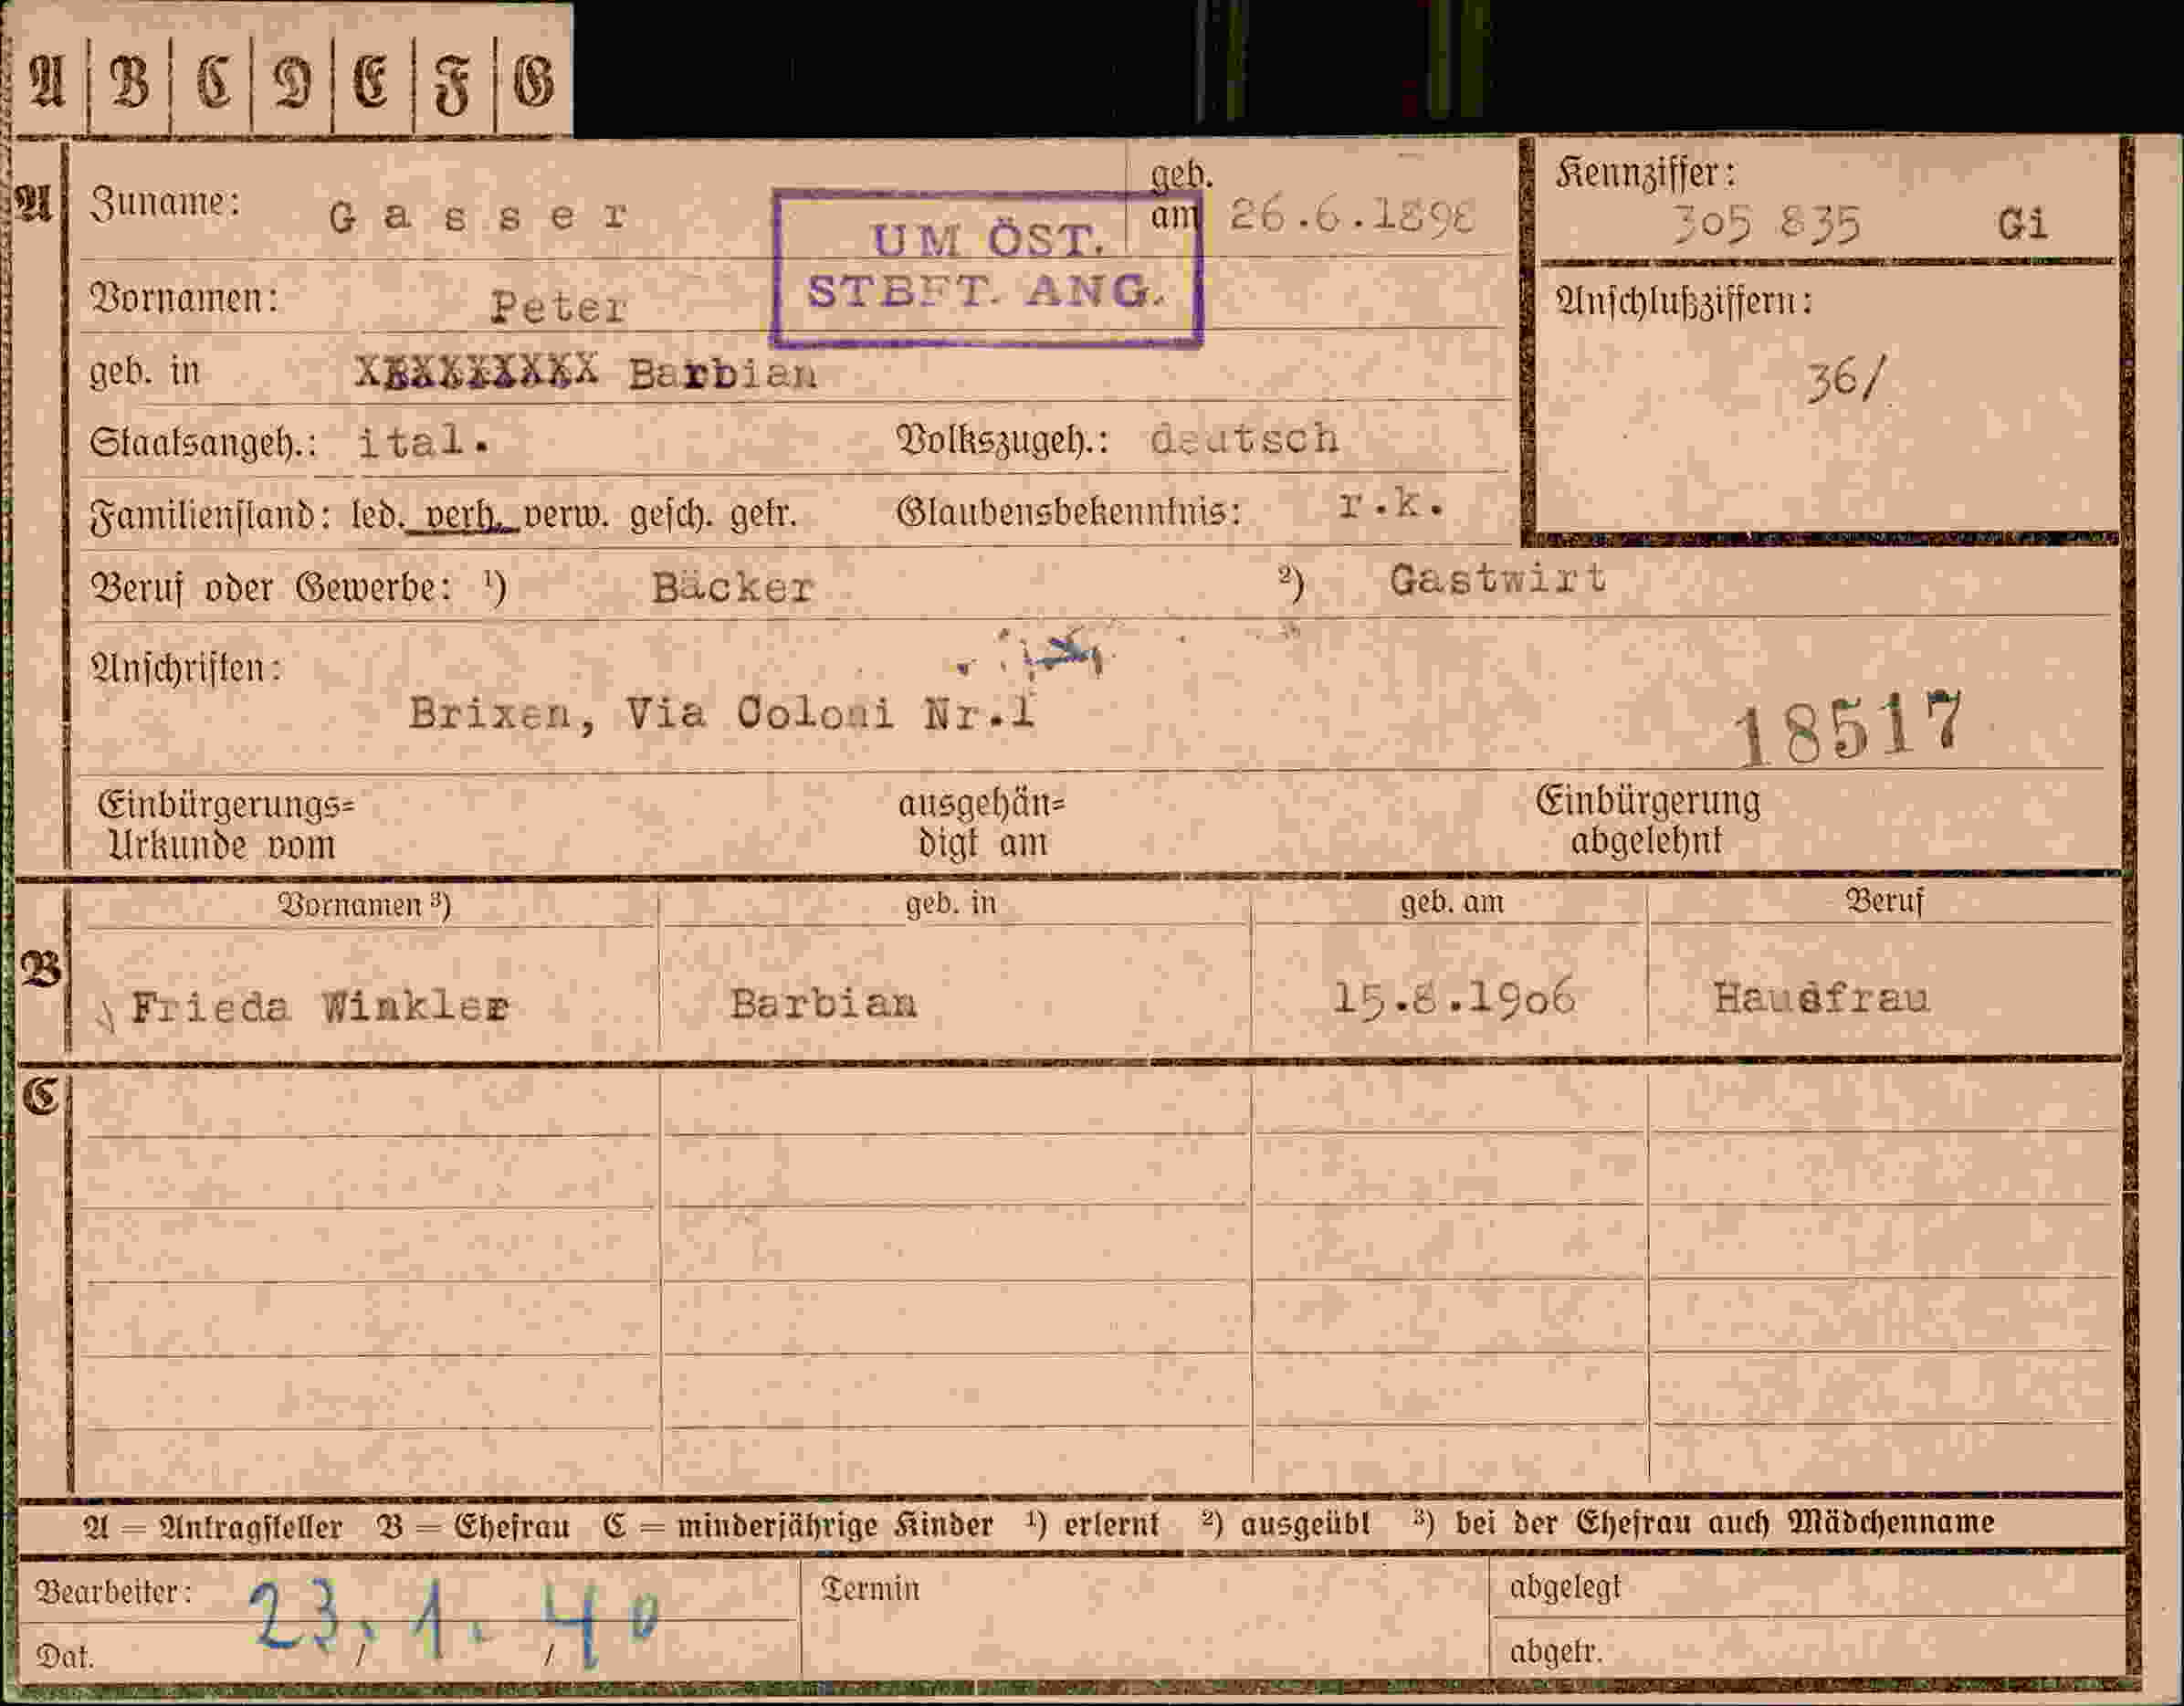 A B C D E F G
A
Zuname: Gasser
geb. am 26.6.1898
Kennziffer: 305 835 Gi
UM ÖST.
STBFT. ANG.
Vornamen: Peter
Anschlußziffern:
36/
geb. in Barbian
Staatsangeh.: ital. Volkszugeh.: deutsch
Familienstand: led. verh. verw. gesch. getr. Glaubensbekenntnis: r.k.
Beruf oder Gewerbe: ¹) Bäcker ²) Gastwirt
Anschriften:
Brixen, Via Coloni Nr.1
18517
Einbürgerungs=
Urkunde vom
ausgehän=
digt am
Einbürgerung
abgelehnt
B
Vornamen ³) geb. in geb. am Beruf
Frieda Winkler Barbian 15.8.1906 Hausfrau
C
A = Antragsteller B = Ehefrau C = minderjährige Kinder ¹) erlernt ²) ausgeübt ³) bei der Ehefrau auch Mädchenname
Bearbeiter:
Dat. 23.1.40
Termin
abgelegt
abgetr.